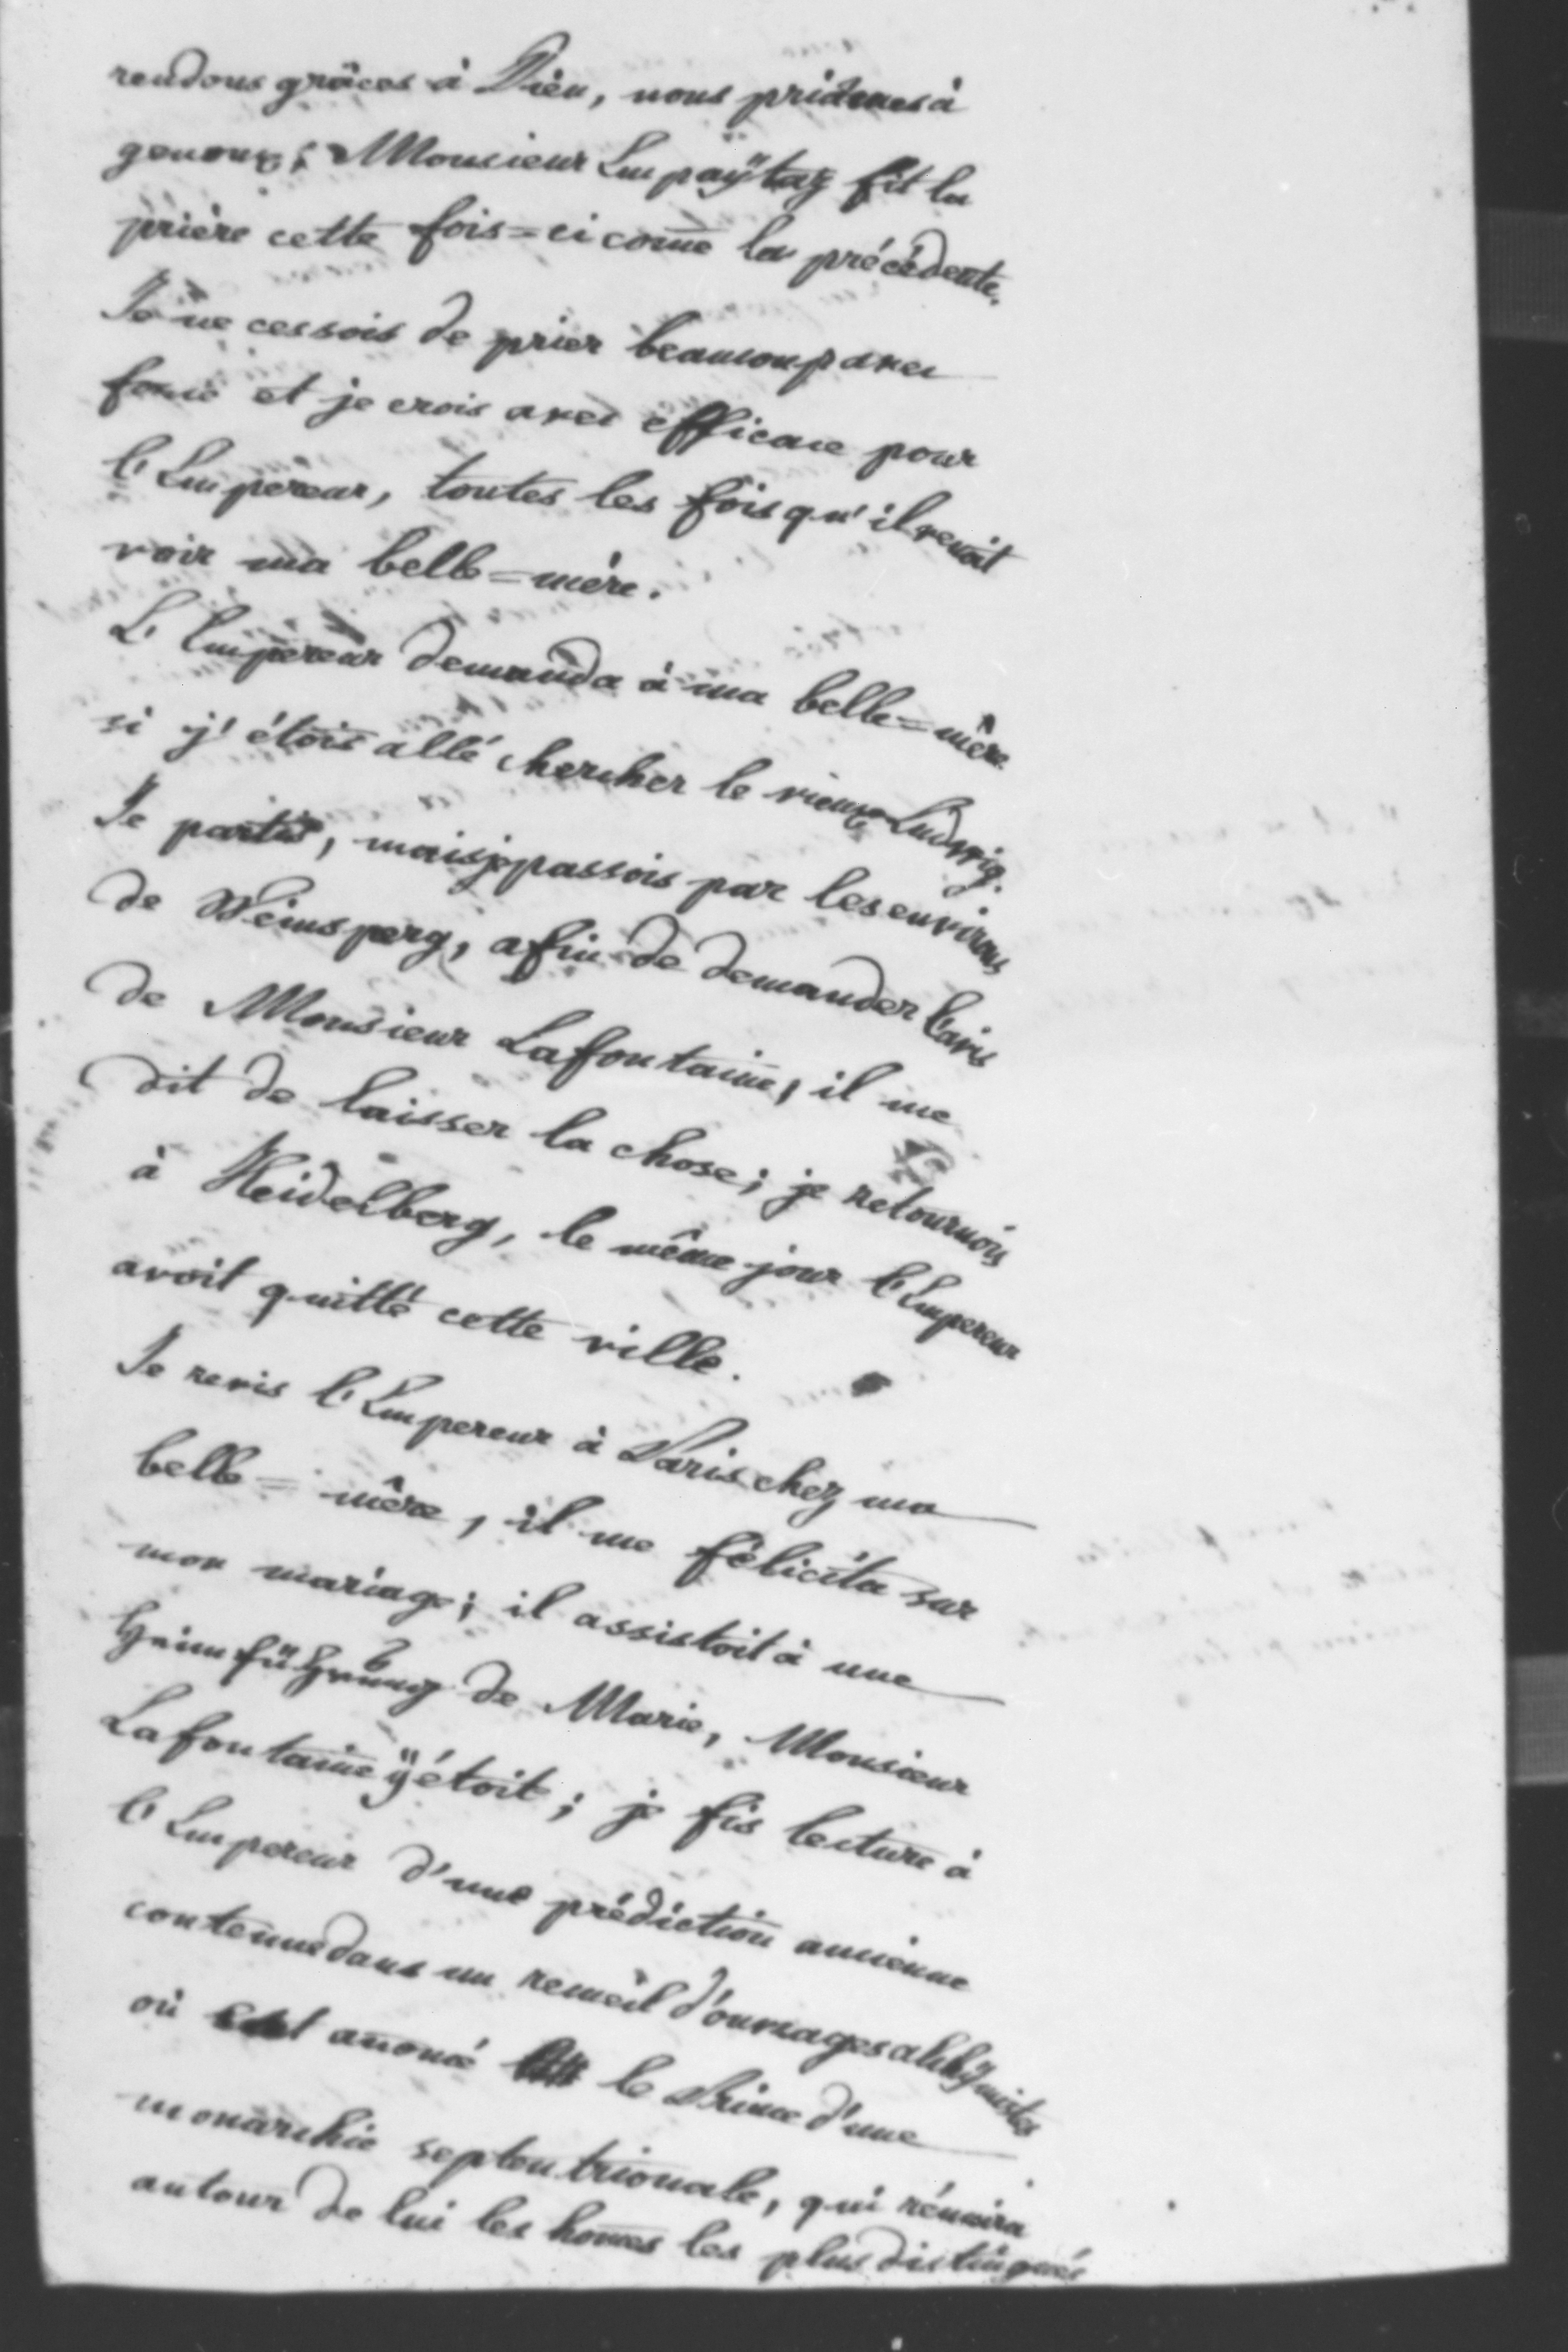 rendons grâces à Dieu, nous priâmes à
genoux; Monsieur Empaÿtaz fit la
prière cette fois=ci come la précédente.
Je ne cessois de prier beaucoup avec
force et je crois avec efficace pour
l'Empereur, toutes les fois qu'il venoit
voir ma belle=mère.
L'Empereur demanda à ma belle=mère
si j'étois allé chercher le vieux Ludwig.
Je partis, mais je passois par les environs
de Weinsperg, afin de demander l'avis
de Monsieur Lafontaine, il me
dit de laisser la chose; je retournois
à Heidelberg, le même jour l'Empereur
avoit quitté cette ville.
Je revis l'Empereur à Paris chez ma
belle=mère, il me félicita sur
mon mariage; il assistoit à une
Heimführung de Marie, Monsieur
Lafontaine ÿ étoit; je fis lecture à
l'Empereur d'une prédiction ancienne
contenue dans un recueil d'ouvrages alchÿmistes
où est anoncé le Prince d'une
monarchie septentrionale, qui réunira
autour de lui les homes les plus distingués